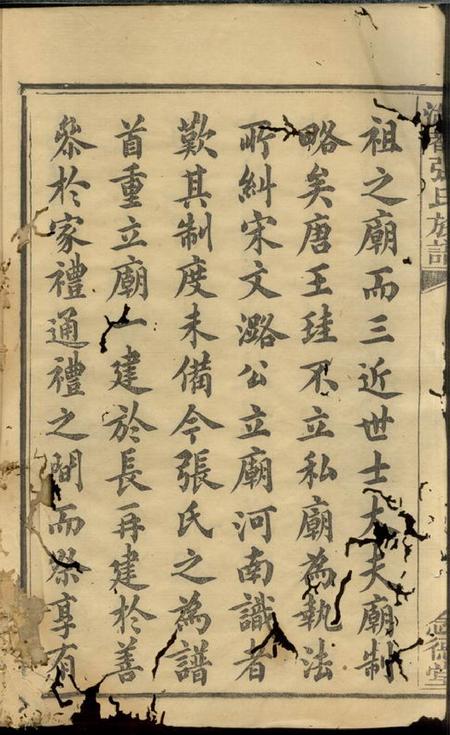 祖之廟而三近世士大夫廟制
略矣唐王珪不立私廟為執法
所糾宋文潞公立廟河南識者
歎其制度未備今張氏之為譜
首重立廟一建於長再建於善
叅於家禮通禮之間而祭享有
張氏族譜